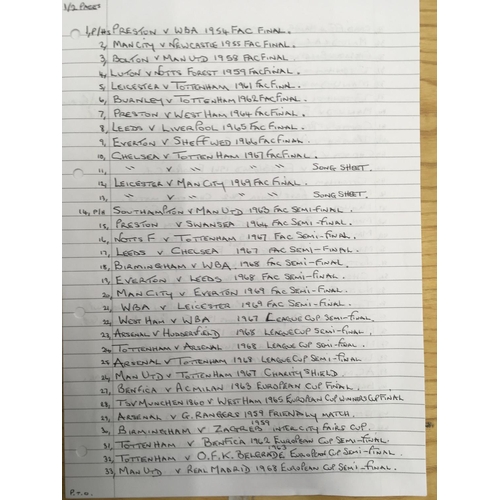 1/2 PAGES
1, P/Hs PRESTON V WBA 1954 FAC FINAL.
2, MAN CITY V NEWCASTLE 1955 FAC FINAL.
3, BOLTON V MAN UTD 1958 FACFINAL.
4, LUTON V NOTTS FOREST 1959 FACFINAL.
5, LEICESTER V TOTTENHAM 1961 FACFINAL.
6, BURNLEY V TOTTENHAM 1962 FACFINAL.
7, PRESTON V WEST HAM 1964 FACFINAL.
8, LEEDS V LIVERPOOL 1965 FACFINAL.
9, EVERTON V SHEFF WED 1966 FACFINAL.
10, CHELSEA V TOTTENHAM 1967 FACFINAL.
11, " " V " " " " SONG SHEET.
12, LEICESTER V MAN CITY 1969 FAC FINAL.
13, " " V " " " " SONG SHEET.
14, P/H SOUTHAMPTON V MAN UTD 1963 FAC SEMI-FINAL.
15, PRESTON V SWANSEA 1964 FAC SEMI-FINAL.
16, NOTTS F V TOTTENHAM 1967 FAC SEMI-FINAL.
17, LEEDS V CHELSEA 1967 FAC SEMI-FINAL.
18, BIRMINGHAM V WBA 1968 FAC SEMI-FINAL.
19, EVERTON V LEEDS 1968 FAC SEMI-FINAL.
20, MAN CITY V EVERTON 1969 FAC SEMI-FINAL.
21, WBA V LEICESTER 1969 FAC SEMI-FINAL.
22, WEST HAM V WBA 1967 LEAGUE CUP SEMI-FINAL.
23, ARSENAL V HUDDERFIELD 1968 LEAGUE CUP SEMI-FINAL.
24, TOTTENHAM V ARSENAL 1968 LEAGUE CUP SEMI-FINAL.
25, ARSENAL V TOTTENHAM 1968 LEAGUE CUP SEMI-FINAL
26, MAN UTD V TOTTENHAM 1967 CHARITY SHIELD.
27, BENFICA V AC MILAN 1963 EUROPEAN CUP FINAL.
28, TSV MUNCHEN 1860 V WEST HAM 1965 EUROPEAN CUP WINNERS CUP FINAL
29, ARSENAL V G. RANGERS 1959 FRIENDLY MATCH.
30, BIRMINGHAM V ZAGREB 1959 INTER CITY FAIRS CUP.
31, TOTTENHAM V BENFICA 1962 EUROPEAN CUP SEMI-FINAL.
32, TOTTENHAM V O.F.K. BELGRADE 1963 EUROPEAN CUP SEMI-FINAL.
33, MAN UTD V REAL MADRID 1968 EUROPEAN CUP SEMI-FINAL.
P.T.O.